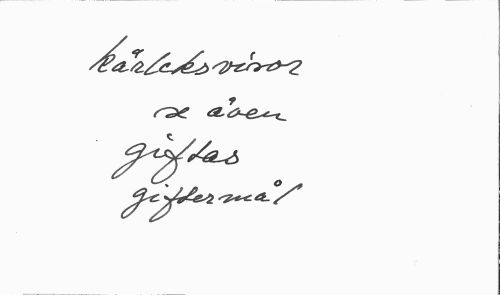 kärleksvisor
se även
giftas
giftermål